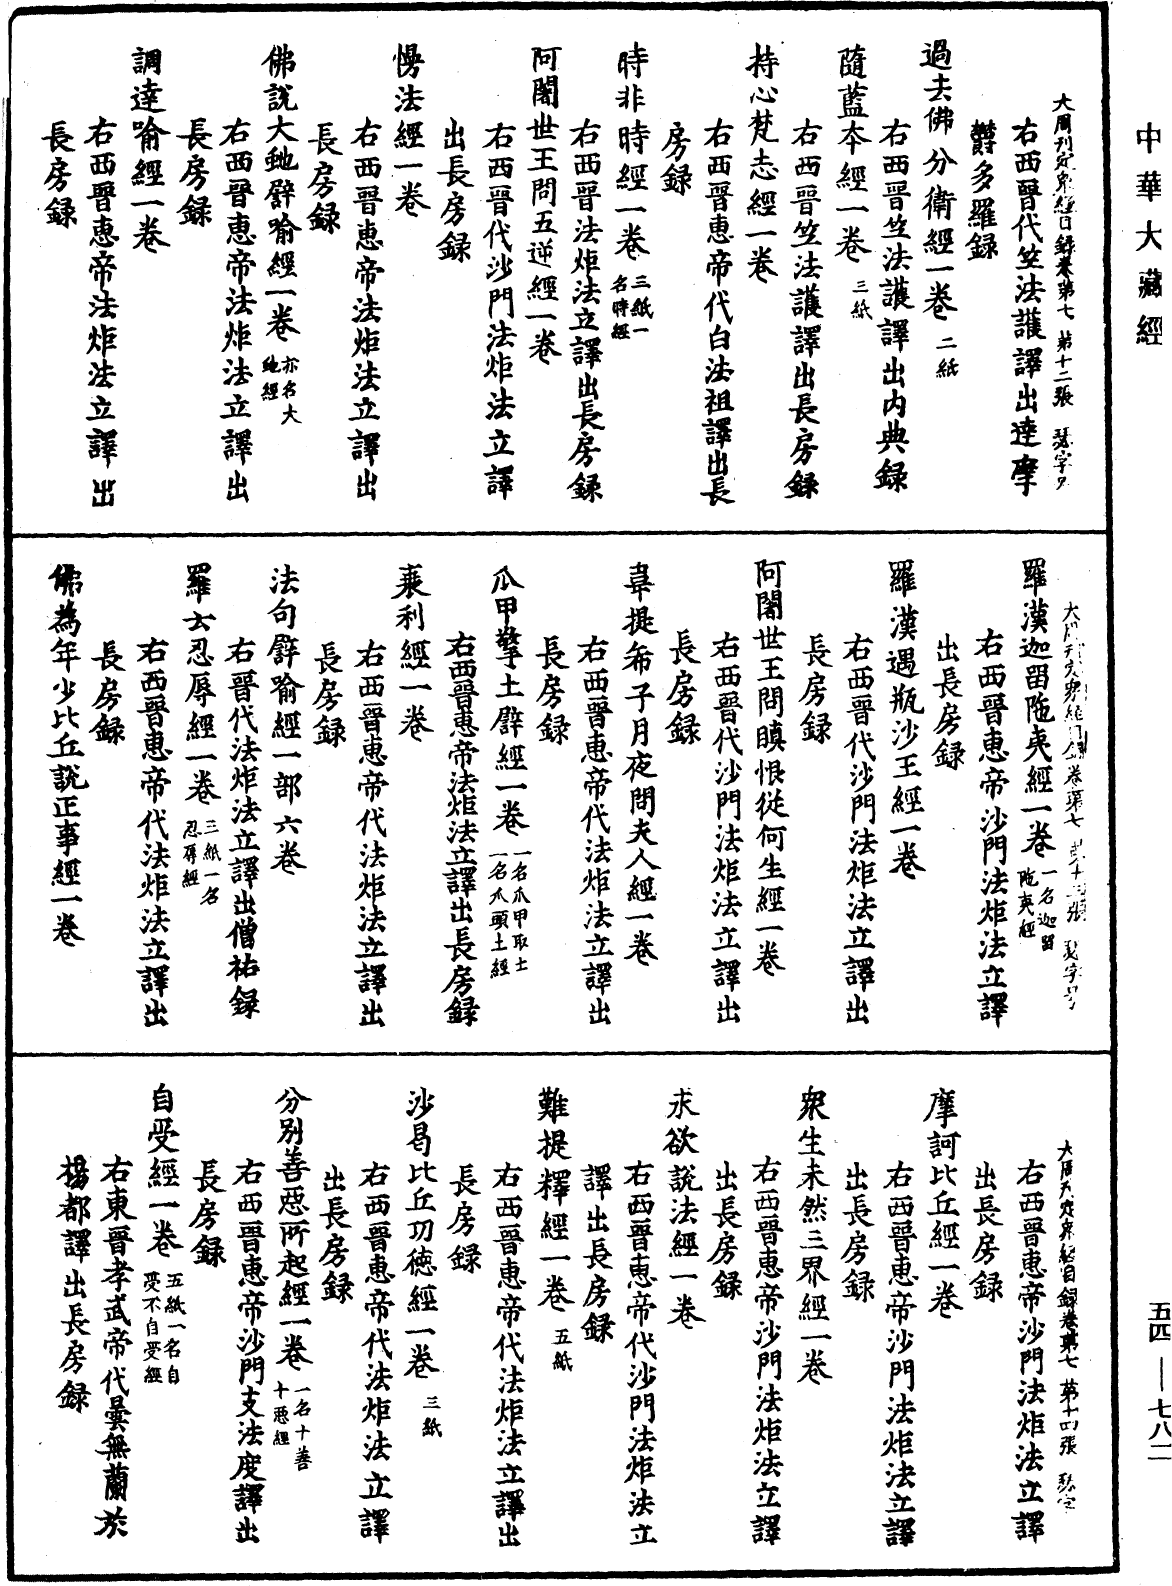 中華大藏經
大周刊定眾經目錄卷第七 第十二張 瑟字号
右西晉代竺法護譯出達摩
欝多羅録
過去佛分衛經一卷 二紙
右西晉竺法護譯出内典録
隨藍本經一卷 三紙
右西晉竺法護譯出長房録
持心梵志經一卷
右西晉惠帝代白法祖譯出長
房録
時非時經一卷 三紙一名時經
右西晉法炬法立譯出長房録
阿闍世王問五逆經一卷
右西晉代沙門法炬法立譯
出長房録
慢法經一卷
右西晉惠帝法炬法立譯出
長房録
佛説大虵譬喻經一卷 亦名大虵經
右西晉惠帝法炬法立譯出
長房録
調達喻經一卷
右西晉惠帝法炬法立譯出
長房録
大周刊定衆經目録卷第七 第十三張 瑟字号
羅漢迦留陁夷經一卷 一名迦留陁夷經
右西晉惠帝沙門法炬法立譯
出長房録
羅漢遇瓶沙王經一卷
右西晉代沙門法炬法立譯出
長房録
阿闍世王問瞋恨從何生經一卷
右西晉代沙門法炬法立譯出
長房録
韋提希子月夜問夫人經一卷
右西晉惠帝代法炬法立譯出
長房録
爪甲擎土譬經一卷 一名爪甲取土一名爪頭土經
右西晉惠帝法炬法立譯出長房録
衰利經一卷
右西晉惠帝代法炬法立譯出
長房録
法句譬喻經一部六卷
右晉代法炬法立譯出僧祐録
羅云忍辱經一卷 三紙一名忍辱經
右西晉惠帝代法炬法立譯出
長房録
佛為年少比丘説正事經一卷
大周刊定衆經目録卷第七 第十四張 瑟字
右西晉惠帝沙門法炬法立譯
出長房録
摩訶比丘經一卷
右西晉惠帝沙門法炬法立譯
出長房録
衆生未然三界經一卷
右西晉惠帝沙門法炬法立譯
出長房録
求欲説法經一卷
右西晉惠帝代沙門法炬法立
譯出長房録
難提釋經一卷 五紙
右西晉惠帝代法炬法立譯出
長房録
沙曷比丘功德經一卷 三紙
右西晉惠帝代法炬法立譯
出長房録
分别善惡所起經一卷 一名十善十惡經
右西晉惠帝沙門支法度譯出
長房録
自受經一卷 五紙一名自受不自受經
右東晉孝武帝代曇無蘭於
楊都譯出長房録
五四——七八二